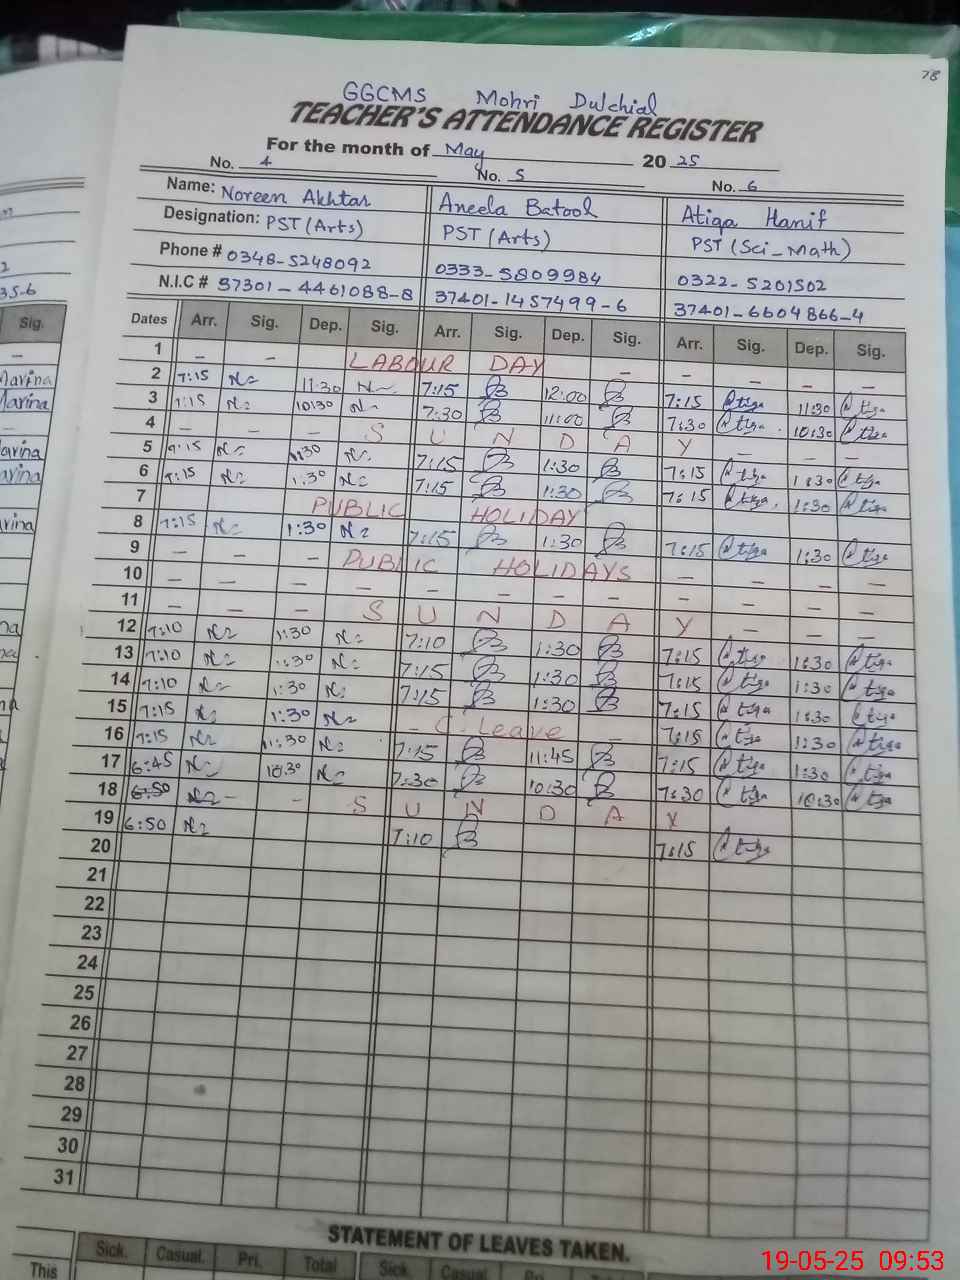 78
GGCMS Mohri Dulchial
TEACHER'S ATTENDANCE REGISTER
For the month of May 2025
No. 4 No. 5 No. 6
Name: Noreen Akhtar Aneela Batool Atiqa Hanif
Designation: PST (Arts) PST (Arts) PST (Sci_Math)
Phone # 0348-5248092 0333-5809984 0322-5201502
N.I.C # 37301-4461088-8 37401-1457499-6 37401-6604866-4
Dates Arr. Sig. Dep. Sig. Arr. Sig. Dep. Sig. Arr. Sig. Dep. Sig.
1 – – LABOUR DAY – – – – –
2 7:15 11:30 7:15 12:00 7:15 Atiqa 11:30 Atiqa
3 7:15 10:30 7:30 11:00 7:30 Atiqa 10:30 Atiqa
4 – – – S U N D A Y – – –
5 7:15 1:30 7:15 1:30 7:15 Atiqa 1:30 Atiqa
6 7:15 1:30 7:15 1:30 7:15 Atiqa 1:30 Atiqa
7 PUBLIC HOLIDAY
8 7:15 1:30 7:15 1:30 7:15 Atiqa 1:30 Atiqa
9 – – – PUBLIC HOLIDAYS – – – –
10 – – – – – – – – – – – –
11 – – – S U N D A Y – – –
12 7:10 1:30 7:10 1:30 7:15 Atiqa 1:30 Atiqa
13 7:10 1:30 7:15 1:30 7:15 Atiqa 1:30 Atiqa
14 7:10 1:30 7:15 1:30 7:15 Atiqa 1:30 Atiqa
15 7:15 1:30 – C. Leave 7:15 Atiqa 1:30 Atiqa
16 7:15 11:30 7:15 11:45 7:15 Atiqa 1:30 Atiqa
17 6:45 10:30 7:30 10:30 7:30 Atiqa 10:30 Atiqa
18 6:50 – – S U N D A Y
19 6:50 7:10 7:15 Atiqa
20
21
22
23
24
25
26
27
28
29
30
31
STATEMENT OF LEAVES TAKEN.
Sick. Casual. Pri. Total Sick. Casual
This
Sig.
Marina
Marina
19-05-25 09:53